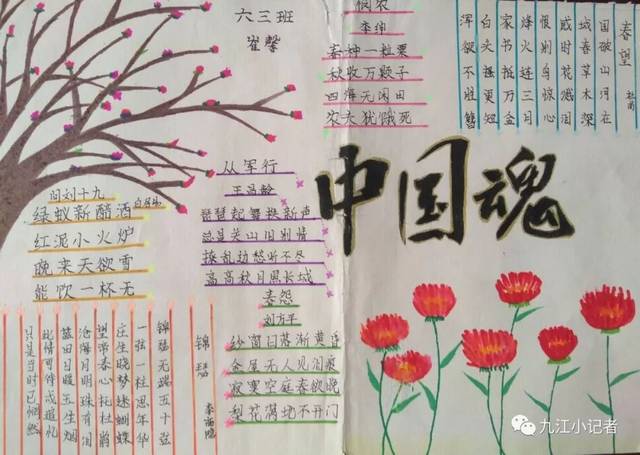 六三班
崔馨
悯农
李绅
春种一粒粟
秋收万颗子
四海无闲田
农夫犹饿死
春望
杜甫
国破山河在
城春草木深
感时花溅泪
恨别鸟惊心
烽火连三月
家书抵万金
白头搔更短
浑欲不胜簪
从军行
王昌龄
琵琶起舞换新声
总是关山旧别情
撩乱边愁听不尽
高高秋月照长城
中国魂
问刘十九
白居易
绿蚁新醅酒
红泥小火炉
晚来天欲雪
能饮一杯无
春怨
刘方平
纱窗日落渐黄昏
金屋无人见泪痕
寂寞空庭春欲晚
梨花满地不开门
锦瑟
李商隐
锦瑟无端五十弦
一弦一柱思年华
庄生晓梦迷蝴蝶
望帝春心托杜鹃
沧海月明珠有泪
蓝田日暖玉生烟
此情可待成追忆
只是当时已惘然
九江小记者